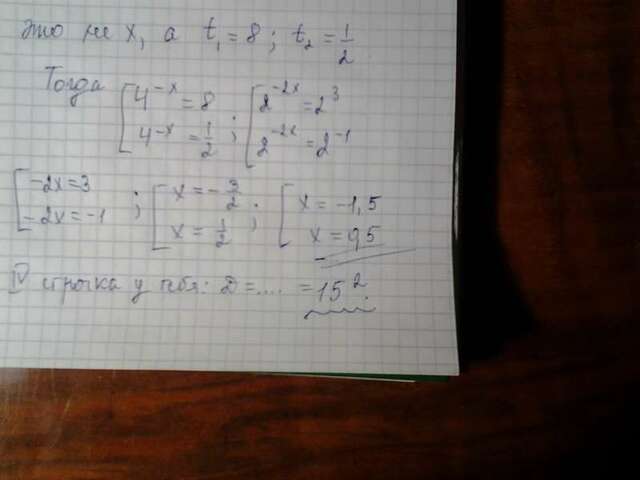 это не x, а t₁ = 8; t₂ = 1/2
Тогда [ 4^(-x) = 8 ; [ 2^(-2x) = 2³
4^(-x) = 1/2 2^(-2x) = 2^(-1)
[ -2x = 3 ; [ x = -3/2 ; [ x = -1,5
-2x = -1 x = 1/2 x = 0,5
IV строчка у тебя: D = .... = 15².